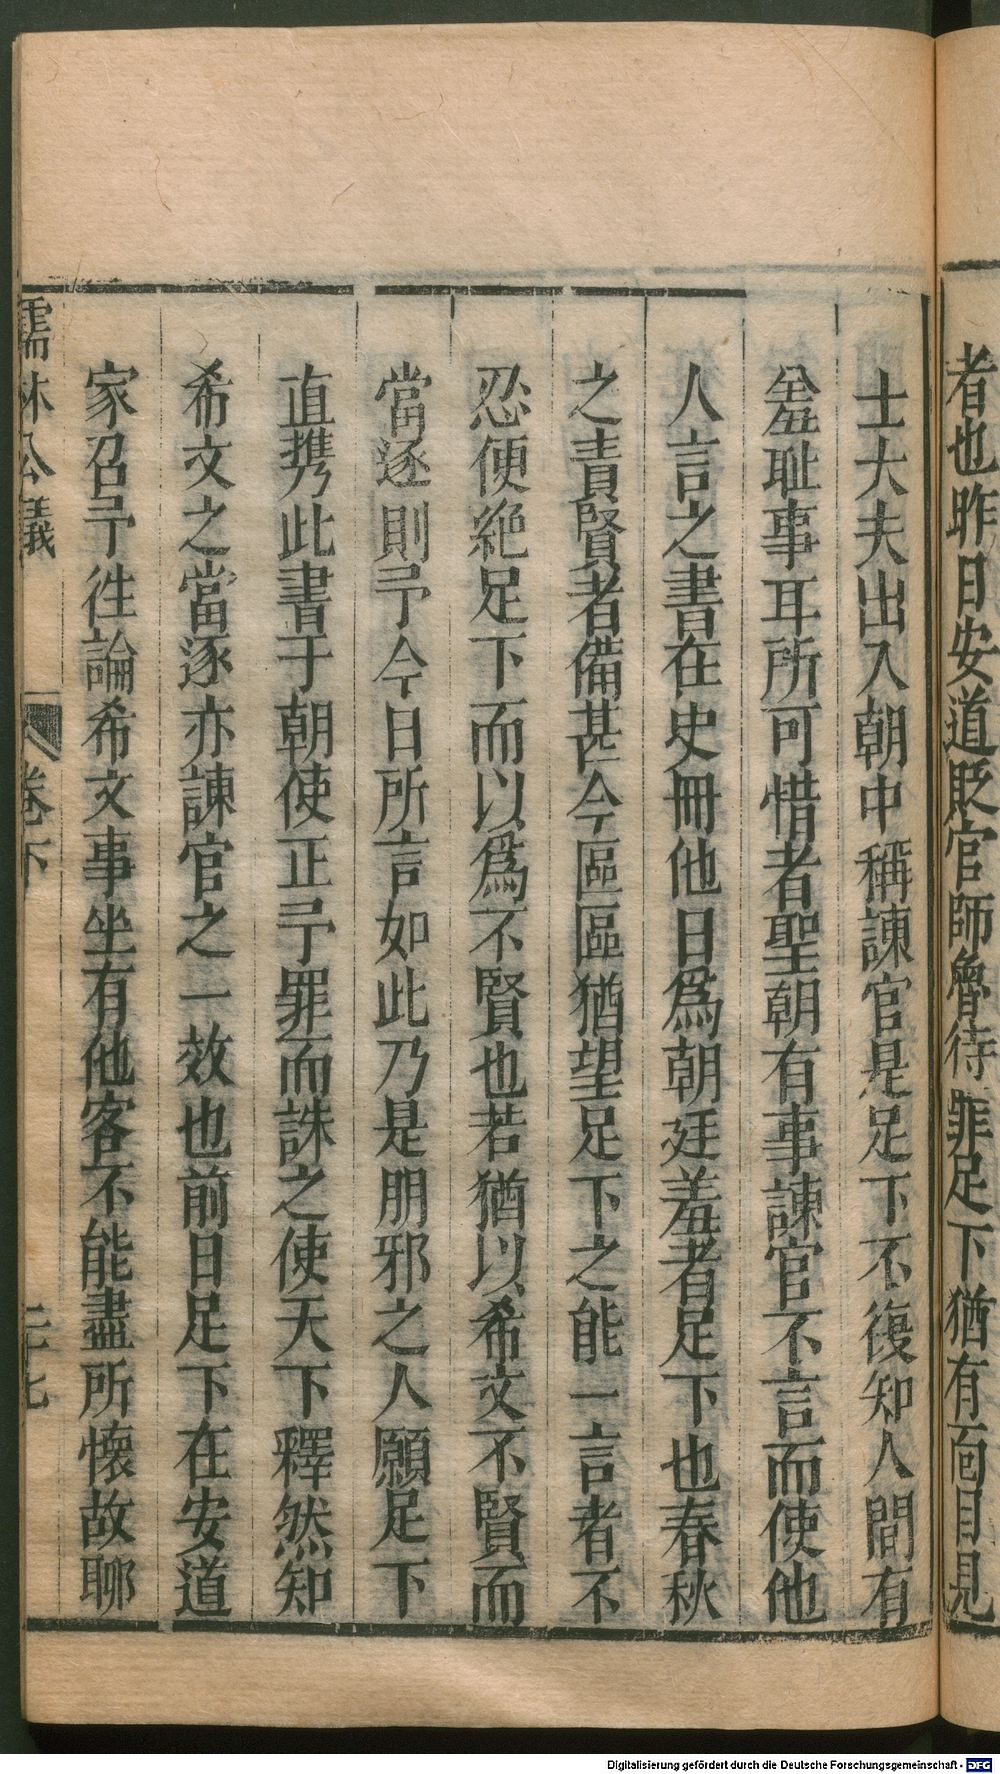 者也昨日安道貶官師魯待罪足下猶有面目見
士大夫出入朝中稱諫官是足下不復知人間有
羞耻事耳所可惜者聖朝有事諫官不言而使他
人言之書在史冊他日爲朝廷羞者足下也春秋
之責賢者備甚今區區猶望足下之能一言者不
忍便絶足下而以爲不賢也若猶以希文不賢而
當逐則予今日所言如此乃是朋邪之人願足下
直携此書于朝使正予罪而誅之使天下釋然知
希文之當逐亦諫官之一效也前日足下在安道
家召予徃論希文事坐有他客不能盡所懷故聊
儒林公議 卷下 二十七
Digitalisierung gefördert durch die Deutsche Forschungsgemeinschaft - DFG